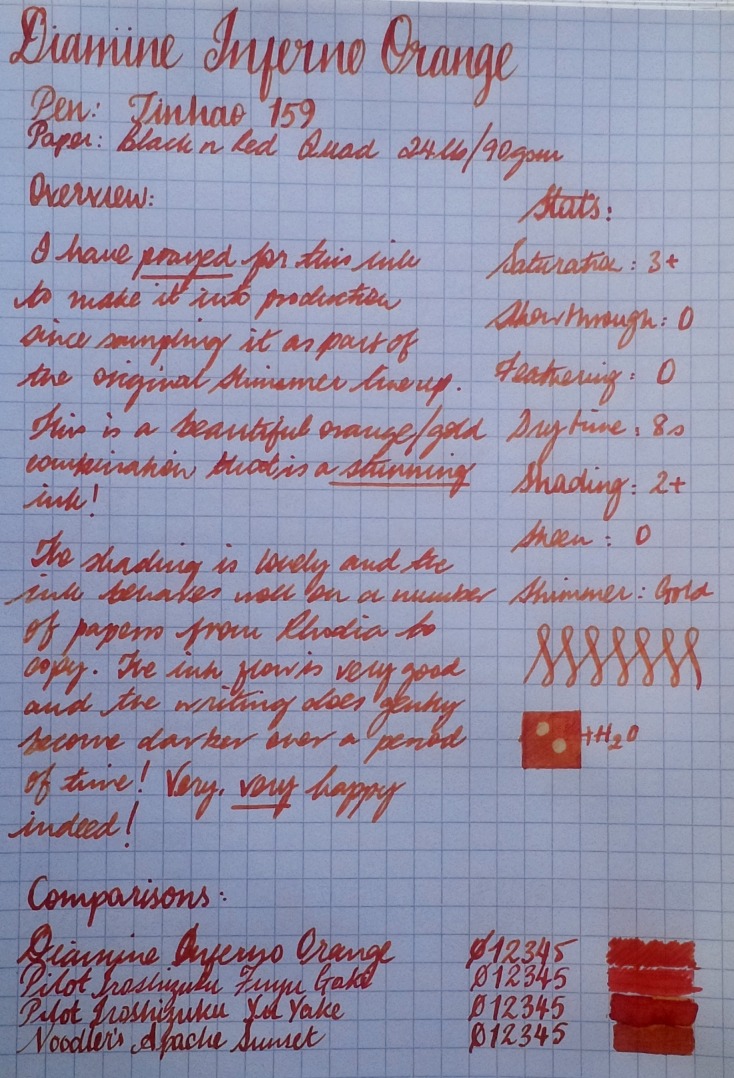 Diamine Inferno Orange
Pen: Jinhao 159
Paper: Black n Red Quad 24lb/90gsm
Overview:
I have prayed for this ink
to make it into production
since sampling it as part of
the original shimmer line up.
This is a beautiful orange/gold
combination that is a stunning
ink!
The shading is lovely and the
ink behaves well on a number
of papers from Rhodia to
copy. The ink flow is very good
and the writing does gently
become darker over a period
of time! Very, very happy
indeed!
Stats:
Saturation: 3+
Showthrough: 0
Feathering: 0
Dry time: 8s
Shading: 2+
Sheen: 0
Shimmer: Gold
+H2O
Comparisons:
Diamine Inferno Orange 012345
Pilot Iroshizuku Fuyu Gaki 012345
Pilot Iroshizuku Yu Yake 012345
Noodler's Apache Sunset 012345